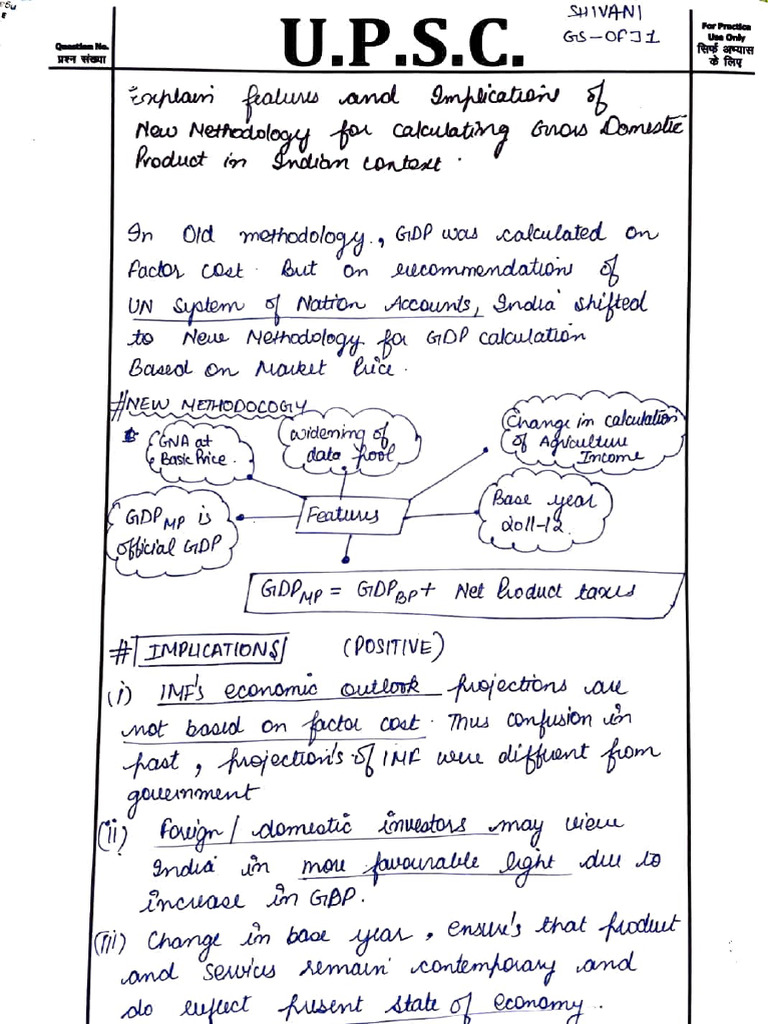 SHIVANI
GS-OFJ1
Question No.
प्रश्न संख्या
U.P.S.C.
For Practice
Use Only
सिर्फ अभ्यास
के लिए
Explain features and Implication of
New Methodology for calculating Gross Domestic
Product in Indian context.
In Old methodology, GDP was calculated on
Factor cost. But on recommendation of
UN System of Nation Accounts, India shifted
to New Methodology for GDP calculation
Based on Market Price.
#NEW METHODOLOGY
GNA at
Basic Price.
widening of
data pool
Change in calculation
of Agriculture
Income
GDP MP is
official GDP
Features
Base year
2011-12.
GDP MP = GDP BP + Net Product taxes
# IMPLICATIONS (POSITIVE)
(i) IMF's economic outlook projections are
not based on factor cost. Thus confusion in
past, projection's of IMF were different from
government
(ii) Foreign/domestic investors may view
India in more favourable light due to
increase in GDP.
(iii) Change in base year, ensure's that product
and services remain contemporary and
do reflect present state of economy.